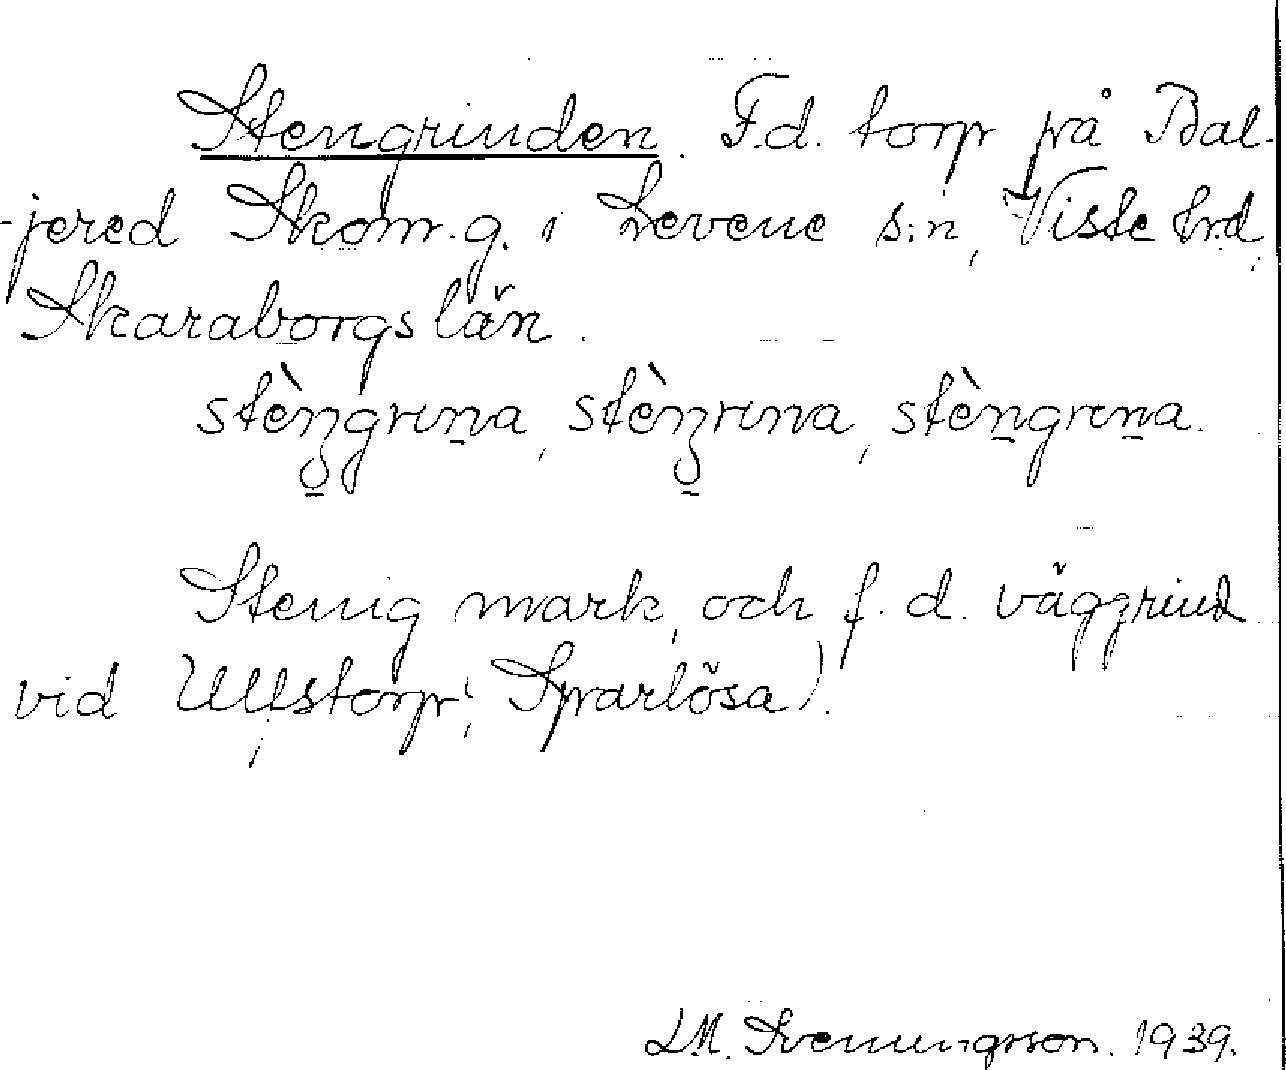 Stengrinden. F.d. torp på Bal-
jered Skom.g. i Levene s:n, Viste hrd,
Skaraborgs län.
stèŋgrina, stèŋrina, stèngrina.
Stenig mark, och f.d. väggrind
vid Ullstorp, Sparlösa).
L.M. Svenungsson. 1939.